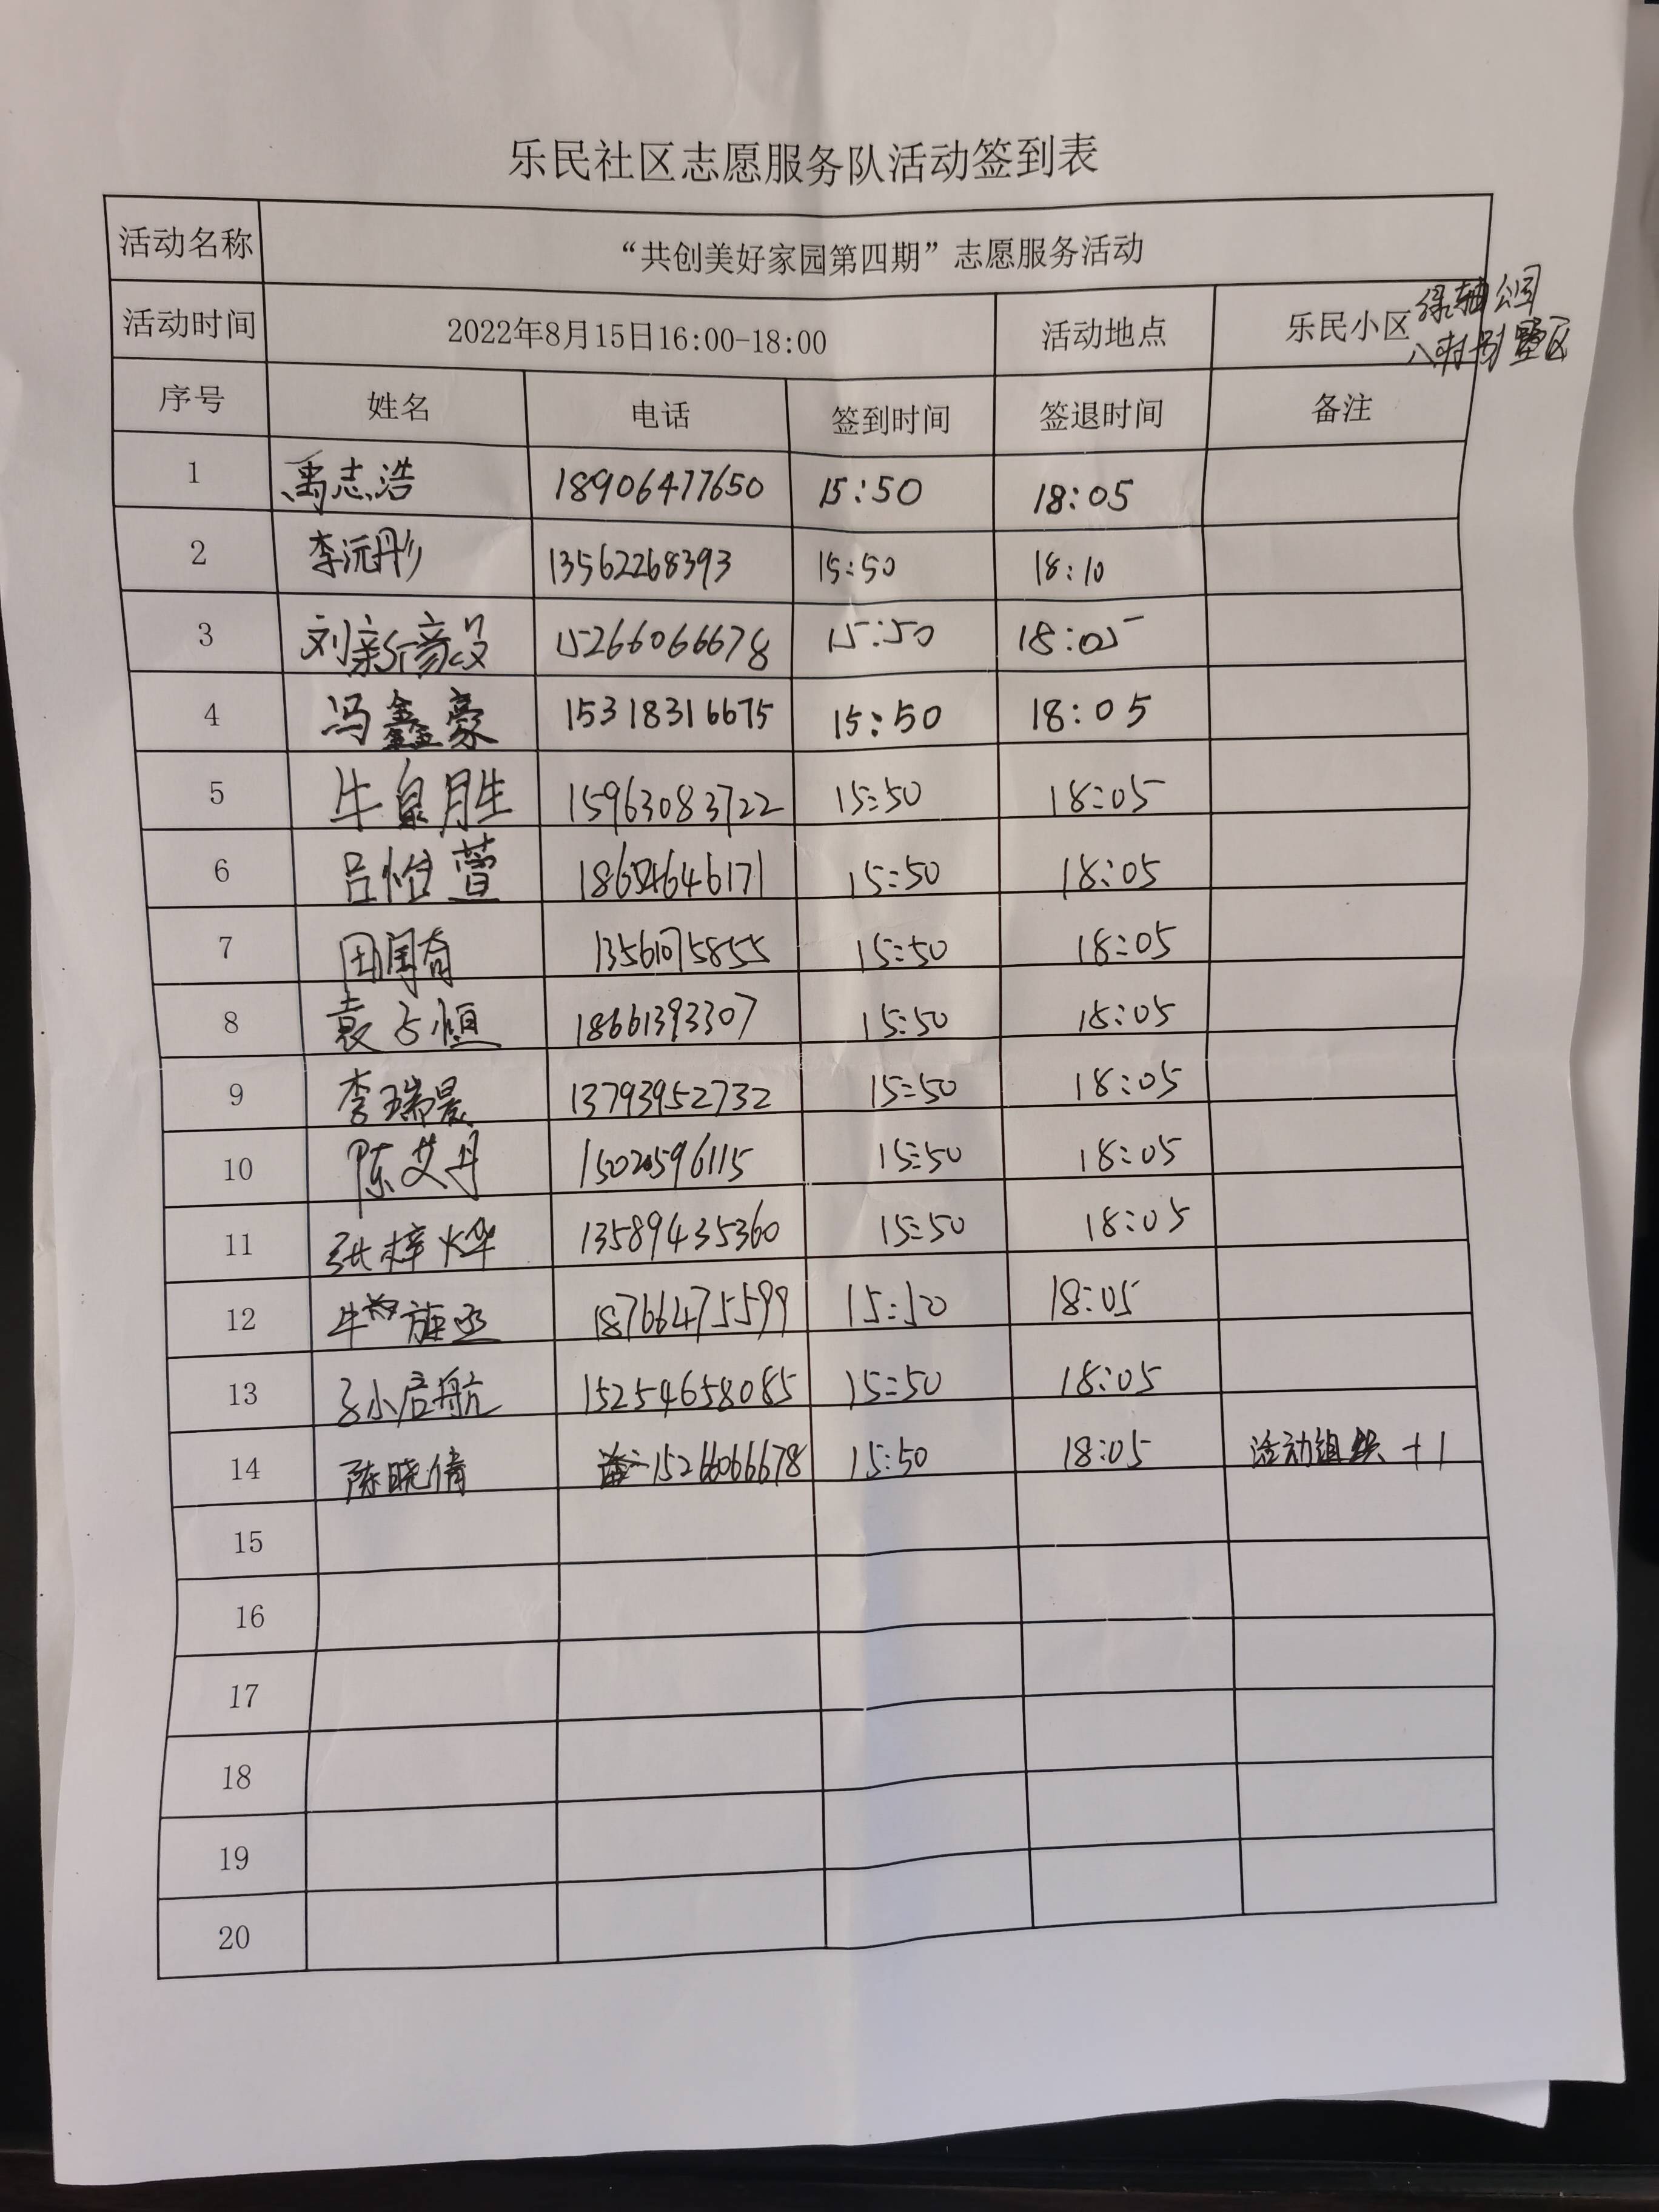 乐民社区志愿服务队活动签到表
活动名称 “共创美好家园第四期”志愿服务活动
活动时间 2022年8月15日16:00-18:00 活动地点 乐民小区 绿轴公园
八村别墅区
序号 姓名 电话 签到时间 签退时间 备注
1 禹志浩 18906477650 15:50 18:05
2 李沅彤 13562268393 15:50 18:10
3 刘新 15266066678 15:50 18:05
4 冯鑫豪 15318316675 15:50 18:05
5 牛泉胜 15963083722 15:50 18:05
6 吕怡萱 18654646171 15:50 18:05
7 田 13561075855 15:50 18:05
8 袁占恒 18661393307 15:50 18:05
9 李瑞晨 13793952732 15:50 18:05
10 陈艾丹 15020596115 15:50 18:05
11 张梓烨 13589435360 15:50 18:05
12 牛旌丞 18766475599 15:50 18:05
13 孙启航 15254658085 15:50 18:05
14 陈晓倩 15266066678 15:50 18:05 活动组织+1
15
16
17
18
19
20